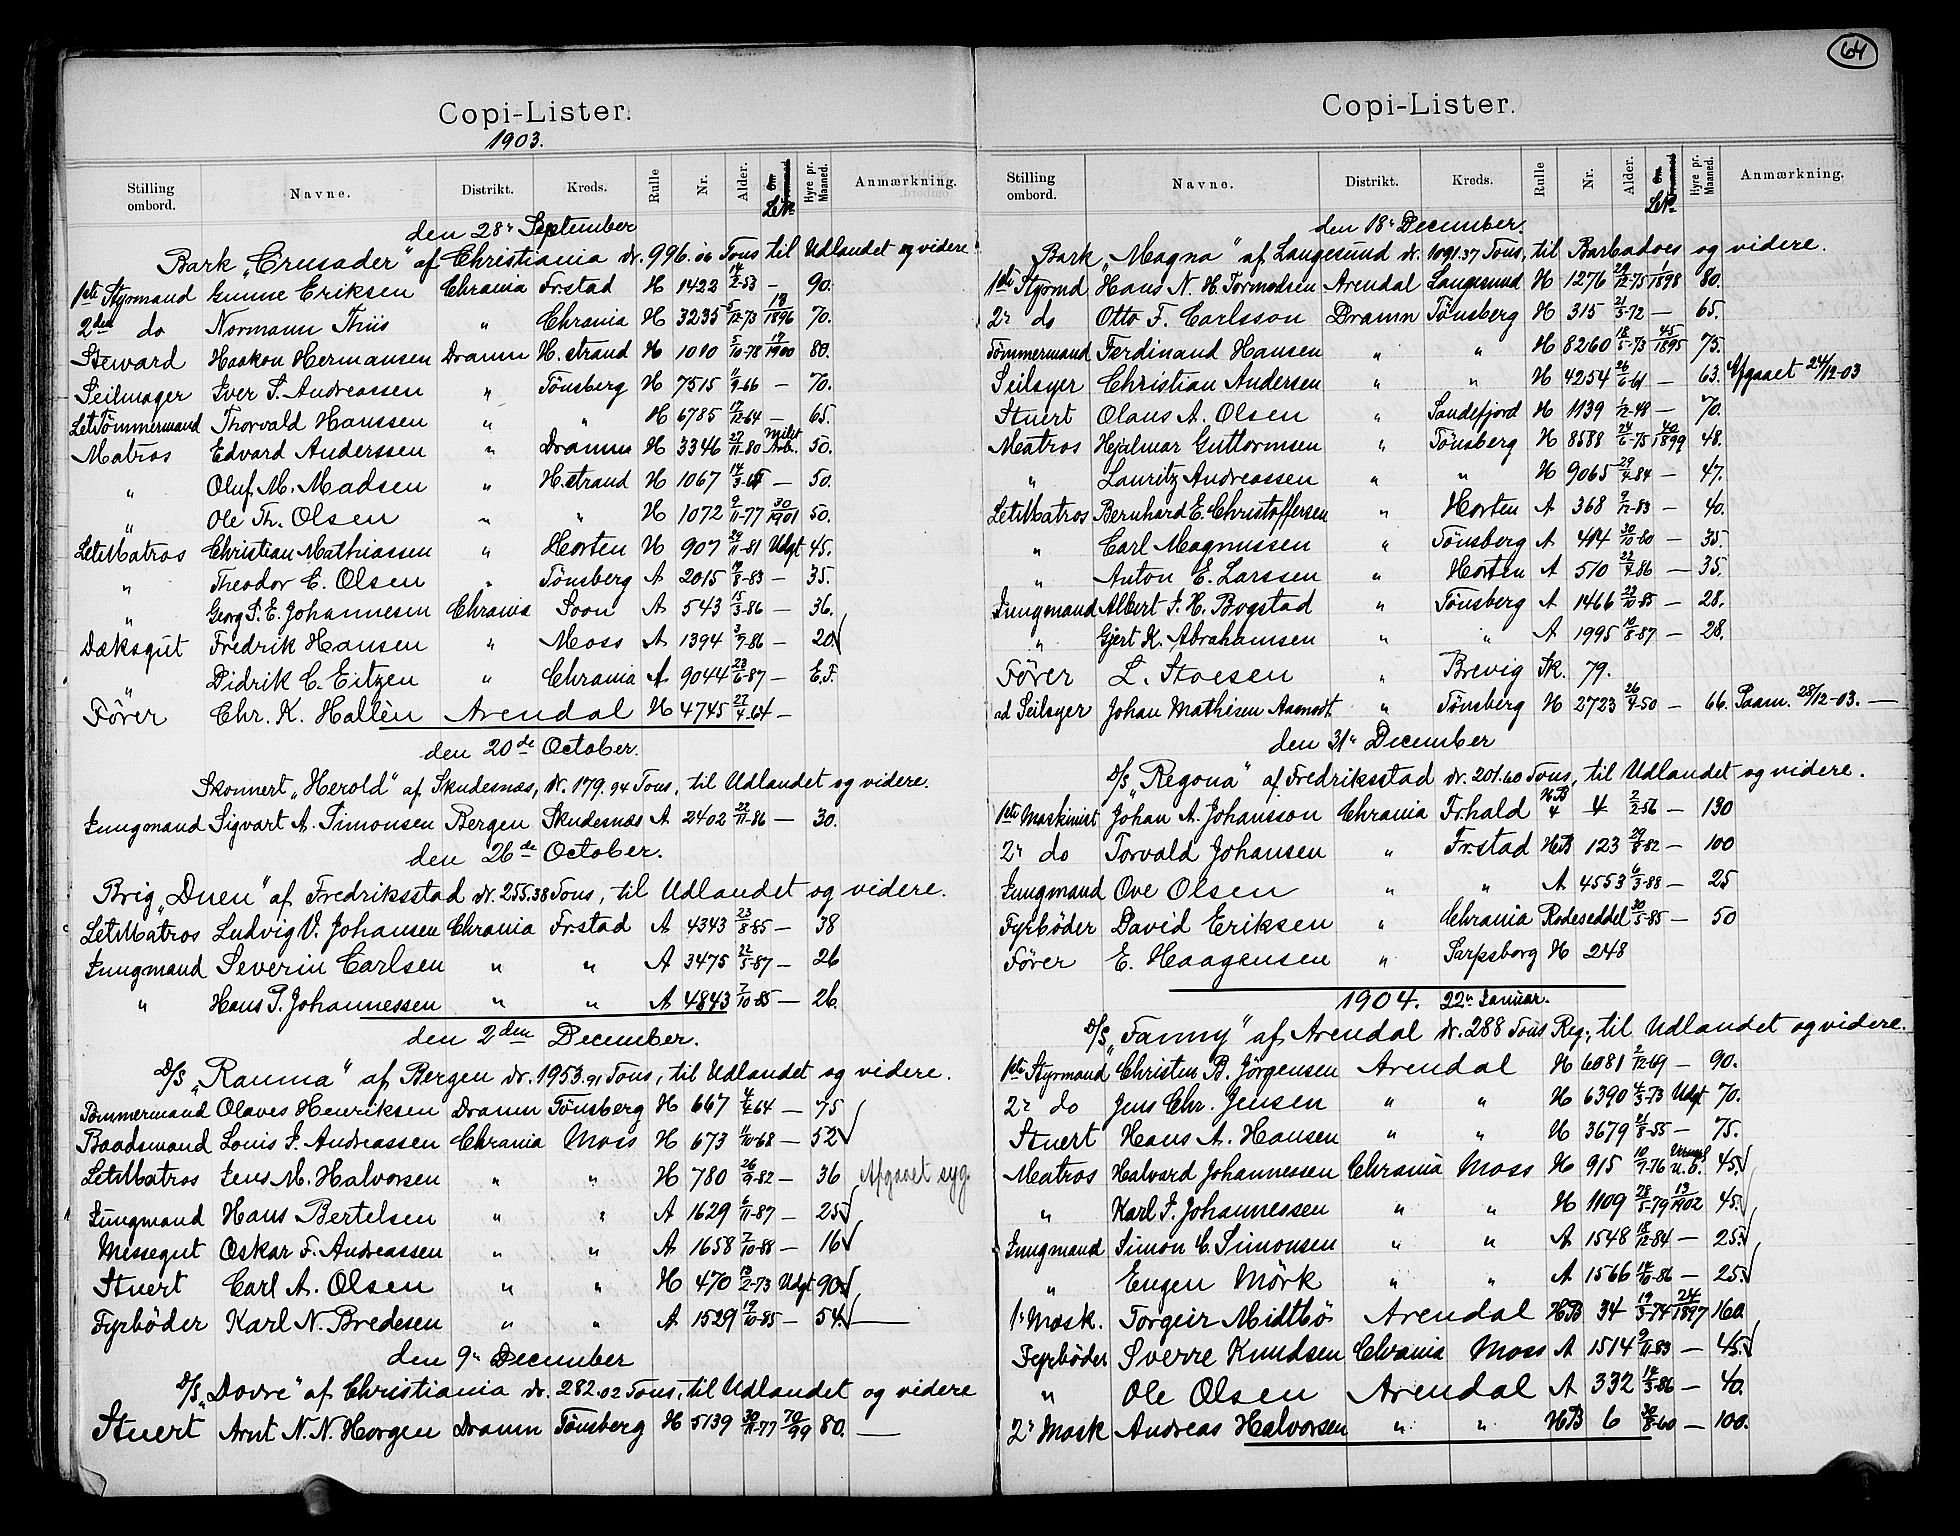 Copi-Lister.
1903.
Stilling ombord. Navne. Distrikt. Kreds. Rulle Nr. Alder. Om Hyre pr. Maaned. Anmærkning.
den 28' September
Bark „Crusader" af Christiania dr. 996.06 Tons til Udlandet og videre
1ste Styrmand Gunne Eriksen Chrania Frstad H 1422 14/2-53 — 90.
2den do Normann Thiis " Chrania H 3235 5/12-73 18/1896 70.
Steward Haakon Hermansen Dramn H.strand H 1010 5/10-78 17/1900 80.
Seilmager Iver S. Andreassen " Tönsberg H 7515 11/9-66 — 70.
LetTömmermand Thorvald Hanssen " " H 6785 17/12-64 — 65.
Matros Edvard Anderssen " Dramn H 3346 27/11-80 50.
" Oluf M. Madsen " H.strand H 1067 14/3- — 50.
" Ole Th. Olsen " " H 1072 9/11-77 30/1901 50.
LetMatros Christian Mathiassen " Horten H 907 29/11-81 Udgt 45.
" Theodor E. Olsen " Tönsberg A 2015 19/8-83 — 35.
" Georg S. E. Johannesen Chrania Soon A 543 15/3-86 — 36.
Dæksgut Fredrik Hansen " Moss A 1394 3/9-86 — 20.
" Didrik C. Eitzen " Chrania A 9044 23/6-87 — E.F.
Förer Chr. K. Hallèn Arendal H 4745 27/4-64 —
den 20de October.
Skonnert „Herold" af Skudesnæs, dr. 179.94 Tons, til Udlandet og videre.
Jungmand Sigvart A. Simonsen Bergen Skudesnæs A 2402 22/11-86 — 30.
den 26de October.
Brig „Duen" af Fredriksstad dr. 255.38 Tons, til Udlandet og videre.
LetMatros Ludvig V. Johansen Chrania Frstad A 4343 23/8-85 — 38
Jungmand Severin Carlsen " " A 3475 22/5-87 — 26
" Hans P. Johannessen " " A 4843 7/10-85 — 26.
den 2den December.
D/S „Rauma" af Bergen dr. 1953.91 Tons, til Udlandet og videre.
Tömmermand Olaves Henriksen Dramn Tönsberg H 667 64 — 75
Baadsmand Louis J. Andreassen Chrania Moss H 673 11/10-68 — 52
LetMatros Jens M. Halvorsen " " H 780 26/9-82 — 36 Afgaaet syg.
Jungmand Hans Bertelsen " " A 1629 6/11-87 — 25
Messegut Oskar F. Andreassen " " A 1658 7/10-88 — 16
Stuert Carl A. Olsen " " H 470 19/2-73 Udgt 90.
Fyrböder Karl N. Bredesen " " A 1529 19/10-85 — 54. —
den 9' December
D/S „Dovre" af Christiania dr. 282.02 Tons, til Udlandet og videre
Stuert Arnt N. N. Horgen Dramn Tönsberg H 5139 30/11-77 70/99 80. —
64
Copi-Lister.
Stilling ombord. Navne. Distrikt. Kreds. Rulle Nr. Alder. Om Hyre pr. Maaned. Anmærkning.
den 18' December
Bark „Magna" af Langesund dr. 1091.37 Tons, til Barbadoes og videre.
1ste Styrmd Hans N. H. Tormodsen Arendal Langesund H 1276 29/12-75 1/1898 80.
2' do Otto F. Carlsson Dramn Tönsberg H 315 21/3-72 — 65.
Tömmermand Ferdinand Hansen " " H 8260 18/5-73 45/1895 75.
Seilsyer Christian Andersen " " H 4254 26/6-61 — 63. Afgaaet 24/12-03
Stuert Olaus A. Olsen " Sandefjord H 1139 1/12-48 — 70.
Matros Hjalmar Guttormsen " Tönsberg H 8588 24/6-75 40/1899 48.
" Lauritz Andreassen " " H 9065 29/4-84 — 47.
LetMatros Bernhard E. Christoffersen " Horten A 368 9/12-83 — 40.
" Carl Magnussen " Tönsberg A 30/10-60 — 35.
" Anton E. Larssen " Horten A 510 22/9-86 — 35.
Jungmand Albert J. H. Bogstad " Tönsberg A 1466 23/10-85 — 28.
" Gjert K. Abrahamsen " " A 1995 10/8-87 — 28.
Förer L. Stoesen " Brevig Sk. 79.
ad Seilsyer Johan Mathisen Aamodt " Tönsberg H 2723 26/4-50 — 66. Paam. 28/12-03. —
den 31' December
D/S „Regona" af Fredriksstad dr. 201.60 Tons, til Udlandet og videre.
1ste Maskinist Johan A. Johansson Chrania Frhald HB 4 4 2/2-56 — 130
2' do Torvald Johansen " Frstad HB 123 29/8-82 — 100
Jungmand Ove Olsen " " A 4553 6/3-88 — 25
Fyrböder David Eriksen " Chrania Rodeseddel 30/5-85 — 50
Förer E. Haagensen " Sarpsborg H 248
1904. 22' Januar.
D/S „Fanny" af Arendal dr. 288 Tons Reg., til Udlandet og videre.
1ste Styrmand Christen B. Jörgensen Arendal H 6081 2/12-69 — 90.
2' do Jens Chr. Jensen " " H 6390 4/3-73 Udgt 70.
Stuert Hans A. Hansen " " H 3679 21/8-55 — 75.
Matros Halvard Johannessen Chrania Moss H 915 10/7-76 45.
" Karl J. Johannessen " " H 1109 28/5-79 13/1902 45.
Jungmand Simon C. Simonsen " " A 1548 18/12-84 — 25.
" Eugen Mörk " " A 1566 14/10-86 — 25.
1' Mask. Torgeir Midtbö Arendal HB 34 19/3-74 24/1897 160.
Fyrböder Sverre Knudsen Chrania Moss A 1514 9/11-83 — 45.
" Ole Olsen Arendal A 332 14/3-86 — 40.
2' Mask Andreas Halvorsen " " HB 6 30/8-60 — 100.